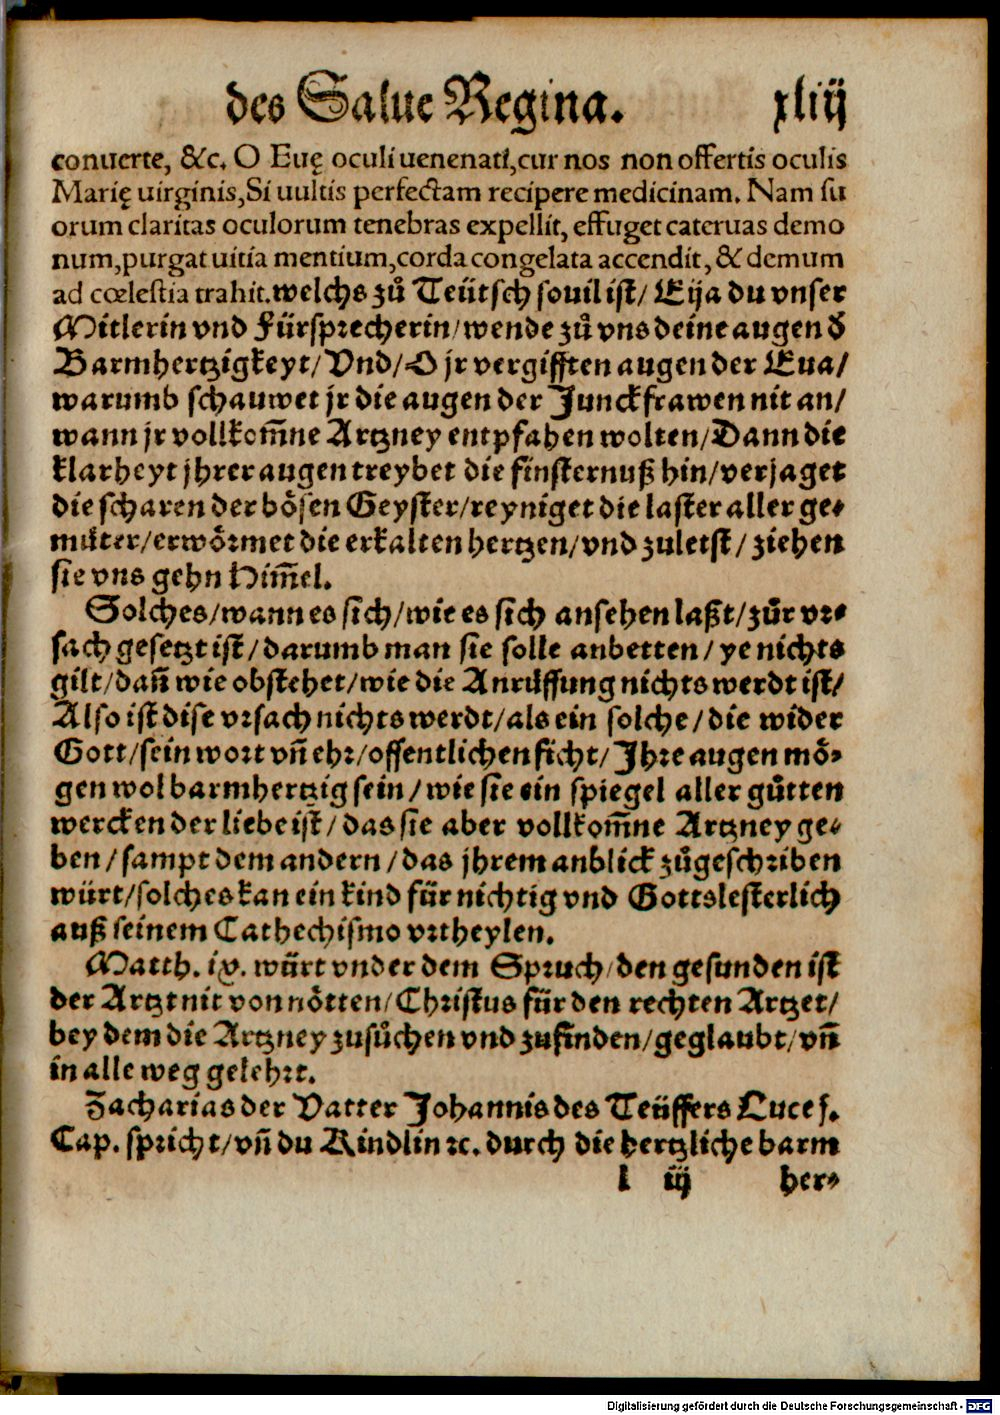 des Salue Regina. xliij
conuerte, &c. O Euę oculi uenenati, cur nos non offertis oculis
Marię uirginis, Si uultis perfectam recipere medicinam. Nam su
orum claritas oculorum tenebras expellit, effuget cateruas demo
num, purgat uitia mentium, corda congelata accendit, & demum
ad cœlestia trahit. welchs zů Teütsch souil ist/ Eija du vnser
Mitlerin vnd Fürsprecherin/ wende zů vns deine augen d̕
Barmhertzigkeyt/ Vnd/ O jr vergifften augen der Eua/
warumb schauwet jr die augen der Junckfrawen nit an/
wann jr vollkom̄ne Artzney entpfahen wolten/ Dann die
klarheyt jhrer augen treybet die finsternuß hin/ verjaget
die scharen der bösen Geyster/ reyniget die laster aller ge⸗
můter/ erwörmet die erkalten hertzen/ vnd zuletst/ ziehen
sie vns gehn Him̄el.
Solches/ wann es sich/ wie es sich ansehen laßt/ zůr vr⸗
sach gesetzt ist/ darumb man sie solle anbetten/ ye nichts
gilt/ dañ wie obstehet/ wie die Anrůffung nichts werdt ist/
Also ist dise vrsach nichts werdt/ als ein solche/ die wider
Gott/ sein wort vñ ehr/ offentlichen ficht/ Jhre augen mö⸗
gen wol barmhertzig sein/ wie sie ein spiegel aller gůtten
wercken der liebe ist/ das sie aber vollkom̄ne Artzney ge⸗
ben/ sampt dem andern/ das jhrem anblick zůgeschriben
würt/ solches kan ein kind für nichtig vnd Gottslesterlich
auß seinem Cathechismo vrtheylen.
Matth. ix. würt vnder dem Spruch/ den gesunden ist
der Artzt nit von nötten/ Christus für den rechten Artzet/
bey dem die Artzney zusůchen vnd zufinden/ geglaubt/ vñ
in alle weg gelehrt.
Zacharias der Vatter Johannis des Teüffers Luce j.
Cap. spricht/ vñ du Kindlin ꝛc. durch die hertzliche barm
l iij her⸗
Digitalisierung gefördert durch die Deutsche Forschungsgemeinschaft - DFG